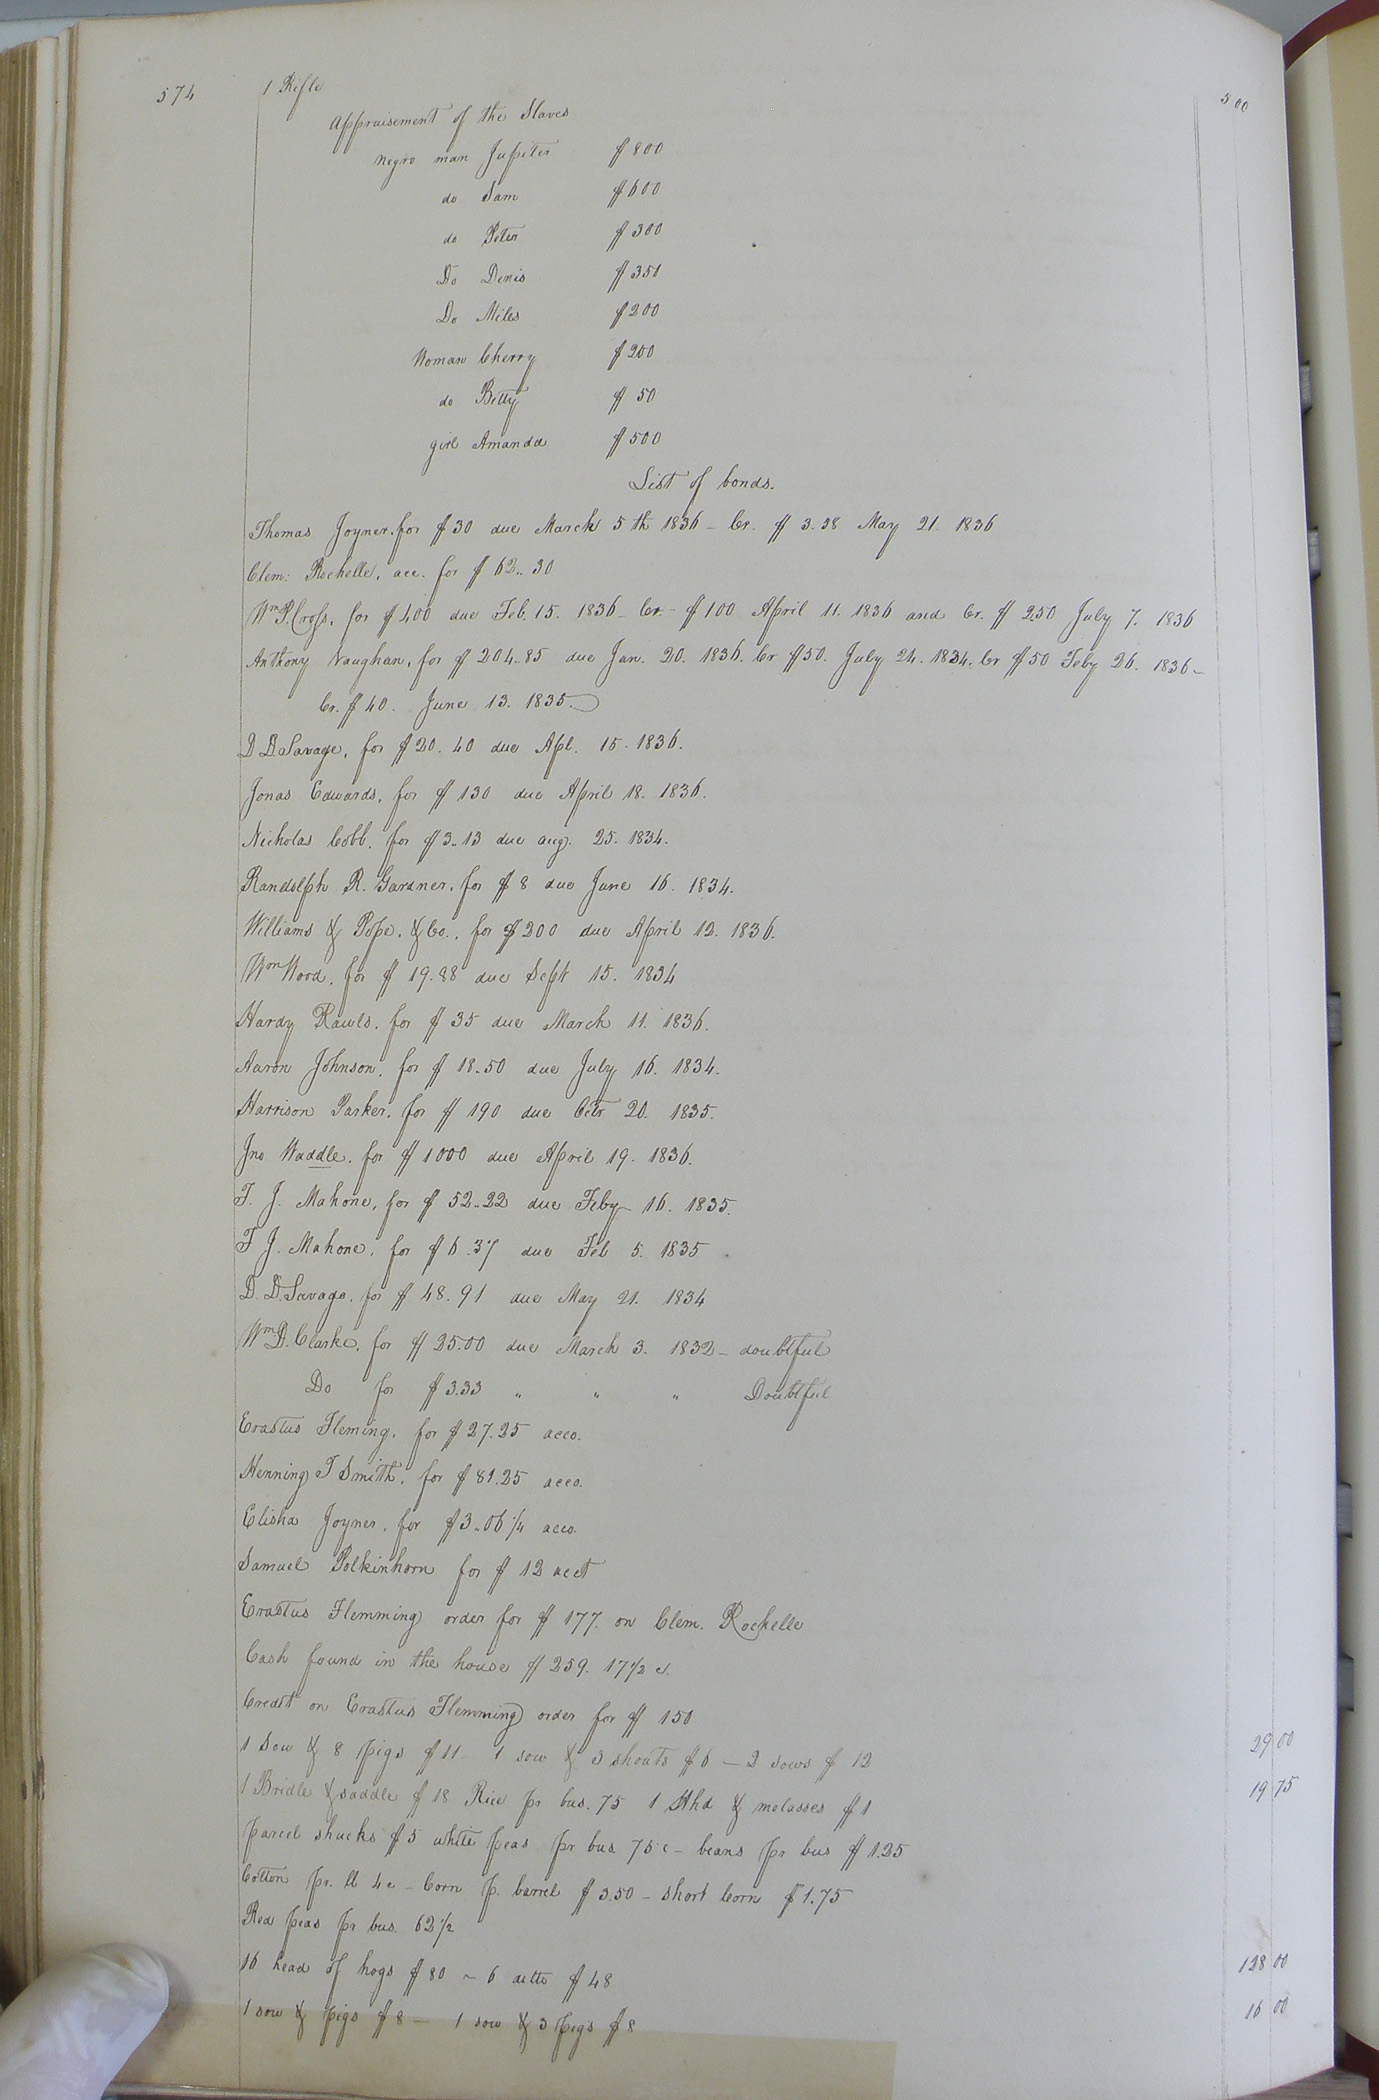 574 1 Rifle 5 00
Appraisement of the Slaves
Negro man Jupiter $ 800
do Sam $ 600
do Peter $ 300
Do Denis $ 350
Do Miles $ 200
Woman Cherry $ 200
do Betty $ 50
girl Amanda $ 500
List of bonds.
Thomas Joyner. for $ 30 due March 5th 1836 - Cr. $ 3.38 May 21. 1836
Clem: Rochelle, acc. for $ 62..30
Wm P. Cross, for $ 400 due Feb. 15. 1836 - Cr. - $ 100 April 11. 1836 and Cr. $ 2.50 July 7. 1836
Anthony Vaughan, for $ 204..85 due Jan. 20. 1836. Cr $50. July 24. 1834. Cr $50 Feby 26. 1836 -
Cr. $ 40. June 13. 1835.
D D. Savage, for $ 20. 40 due Apl. 15. 1836.
Jonas Edwards, for $ 130 due April 18. 1836.
Nicholas Cobb. for $ 3..13 due aug. 25. 1834.
Randolph R. Gardner, for $ 8 due June 16. 1834.
Williams & Pope. & Co., for $ 200 due April 12. 1836.
Wm Wood. for $ 19.88 due Sept 15. 1834
Hardy Rawls. for $ 35 due March 11. 1836.
Aaron Johnson. for $ 18..50 due July 16. 1834.
Harrison Parker. for $ 190 due Octr 20. 1835.
Jno Waddle. for $ 1000 due April 19. 1836.
T. J. Mahone, for $ 52..22 due Feby 16. 1835.
T J. Mahone. for $ 6.37 due Feb 5. 1835
D. D. Savage. for $ 48.91 due May 21. 1834
Wm D. Clarke, for $ 25.00 due March 3. 1832 - doubtful
Do for $ 3.33 " " " Doubtful
Erastus Fleming, for $ 27.25 acco.
Henning T Smith, for $ 81.25 acco.
Elisha Joyner. for $ 3..06 1/4 acco.
Samuel Polkinhorn for $ 12 acct
Erastus Flemming order for $ 177. on Clem. Rochelle
Cash found in the house $ 259. 17 1/2 c.
Credit on Erastus Flemming order for $ 150
1 Sow & 8 pigs $ 11 - 1 sow & 3 shoats $ 6 - 2 sows $ 12 29 00
1 Bridle & saddle $ 18 Rice pr bus. 75 1 Hhd & molasses $ 1 19 75
parcel shucks $ 5 white peas pr bus 75 c - beans pr bus $ 1.25
Cotton pr. lb 4 c - Corn p. barrel $ 3.50 - short Corn $ 1.75
Red peas pr bus. 62 1/2
16 head of hogs $ 80 - 6 ditto $ 48 128 00
1 sow & pigs $ 8 - 1 sow & 3 pigs $ 8 16 00